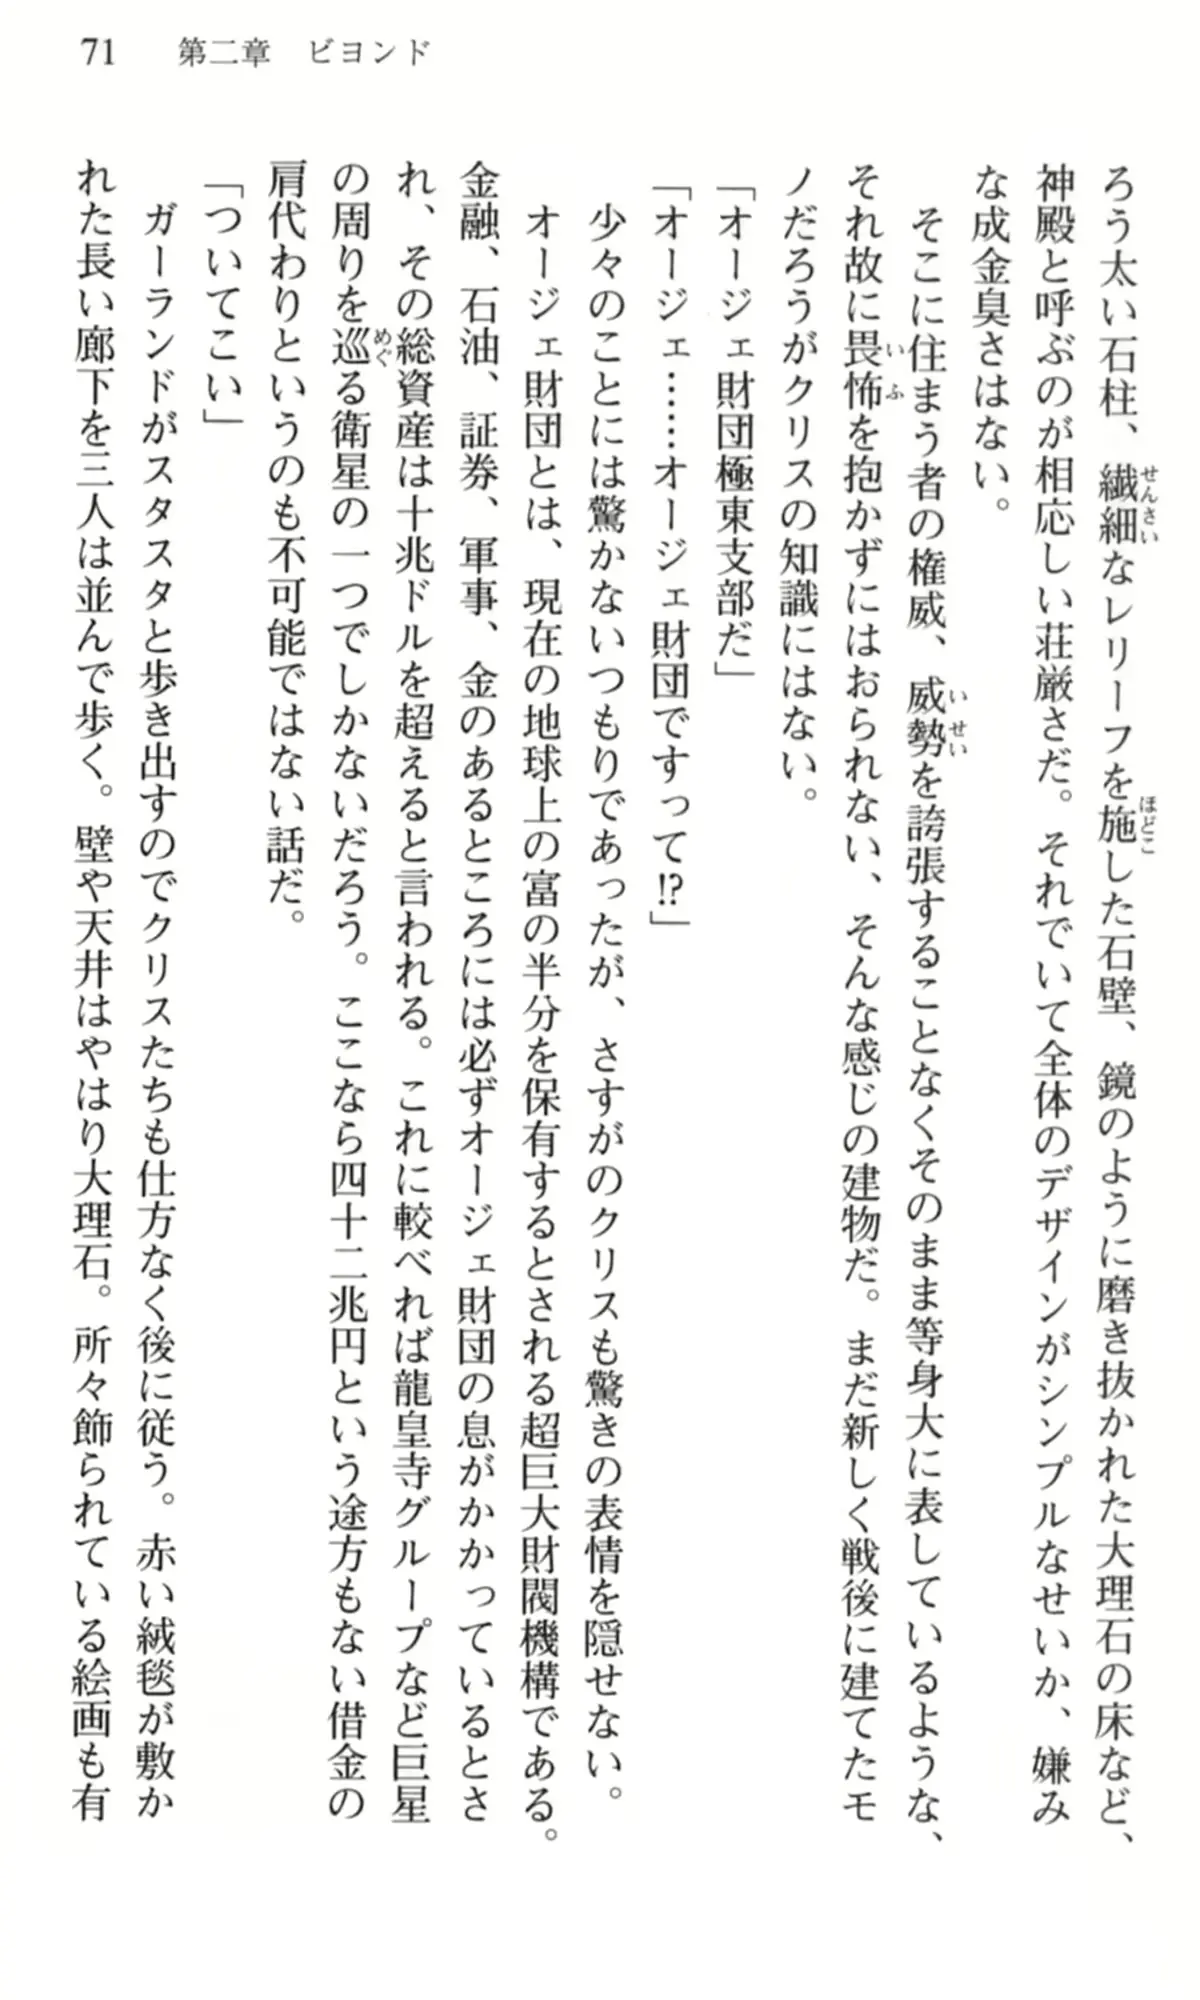 71　第二章　ビヨンド
ろう太い石柱、繊細なレリーフを施した石壁、鏡のように磨き抜かれた大理石の床など、
神殿と呼ぶのが相応しい荘厳さだ。それでいて全体のデザインがシンプルなせいか、嫌み
な成金臭さはない。
　そこに住まう者の権威、威勢を誇張することなくそのまま等身大に表しているような、
それ故に畏怖を抱かずにはおられない、そんな感じの建物だ。まだ新しく戦後に建てたモ
ノだろうがクリスの知識にはない。
「オージェ財団極東支部だ」
「オージェ……オージェ財団ですって!?」
　少々のことには驚かないつもりであったが、さすがのクリスも驚きの表情を隠せない。
　オージェ財団とは、現在の地球上の富の半分を保有するとされる超巨大財閥機構である。
金融、石油、証券、軍事、金のあるところには必ずオージェ財団の息がかかっているとさ
れ、その総資産は十兆ドルを超えると言われる。これに較べれば龍皇寺グループなど巨星
の周りを巡る衛星の一つでしかないだろう。ここなら四十二兆円という途方もない借金の
肩代わりというのも不可能ではない話だ。
「ついてこい」
　ガーランドがスタスタと歩き出すのでクリスたちも仕方なく後に従う。赤い絨毯が敷か
れた長い廊下を三人は並んで歩く。壁や天井はやはり大理石。所々飾られている絵画も有